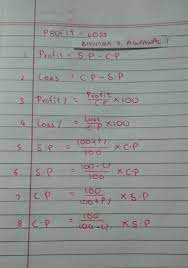 PROFIT - LOSS
BHUMIKA S. AGRAWAL
1. Profit = S.P - C.P
2. Loss = C.P - S.P
3. Profit % = Profit / C.P × 100
4. Loss % = Loss / C.P × 100
5. S.P = 100+P% / 100 × C.P
6. S.P = 100-L% / 100 × C.P
7. C.P = 100 / 100+P% × S.P
8. C.P = 100 / 100-L% × S.P